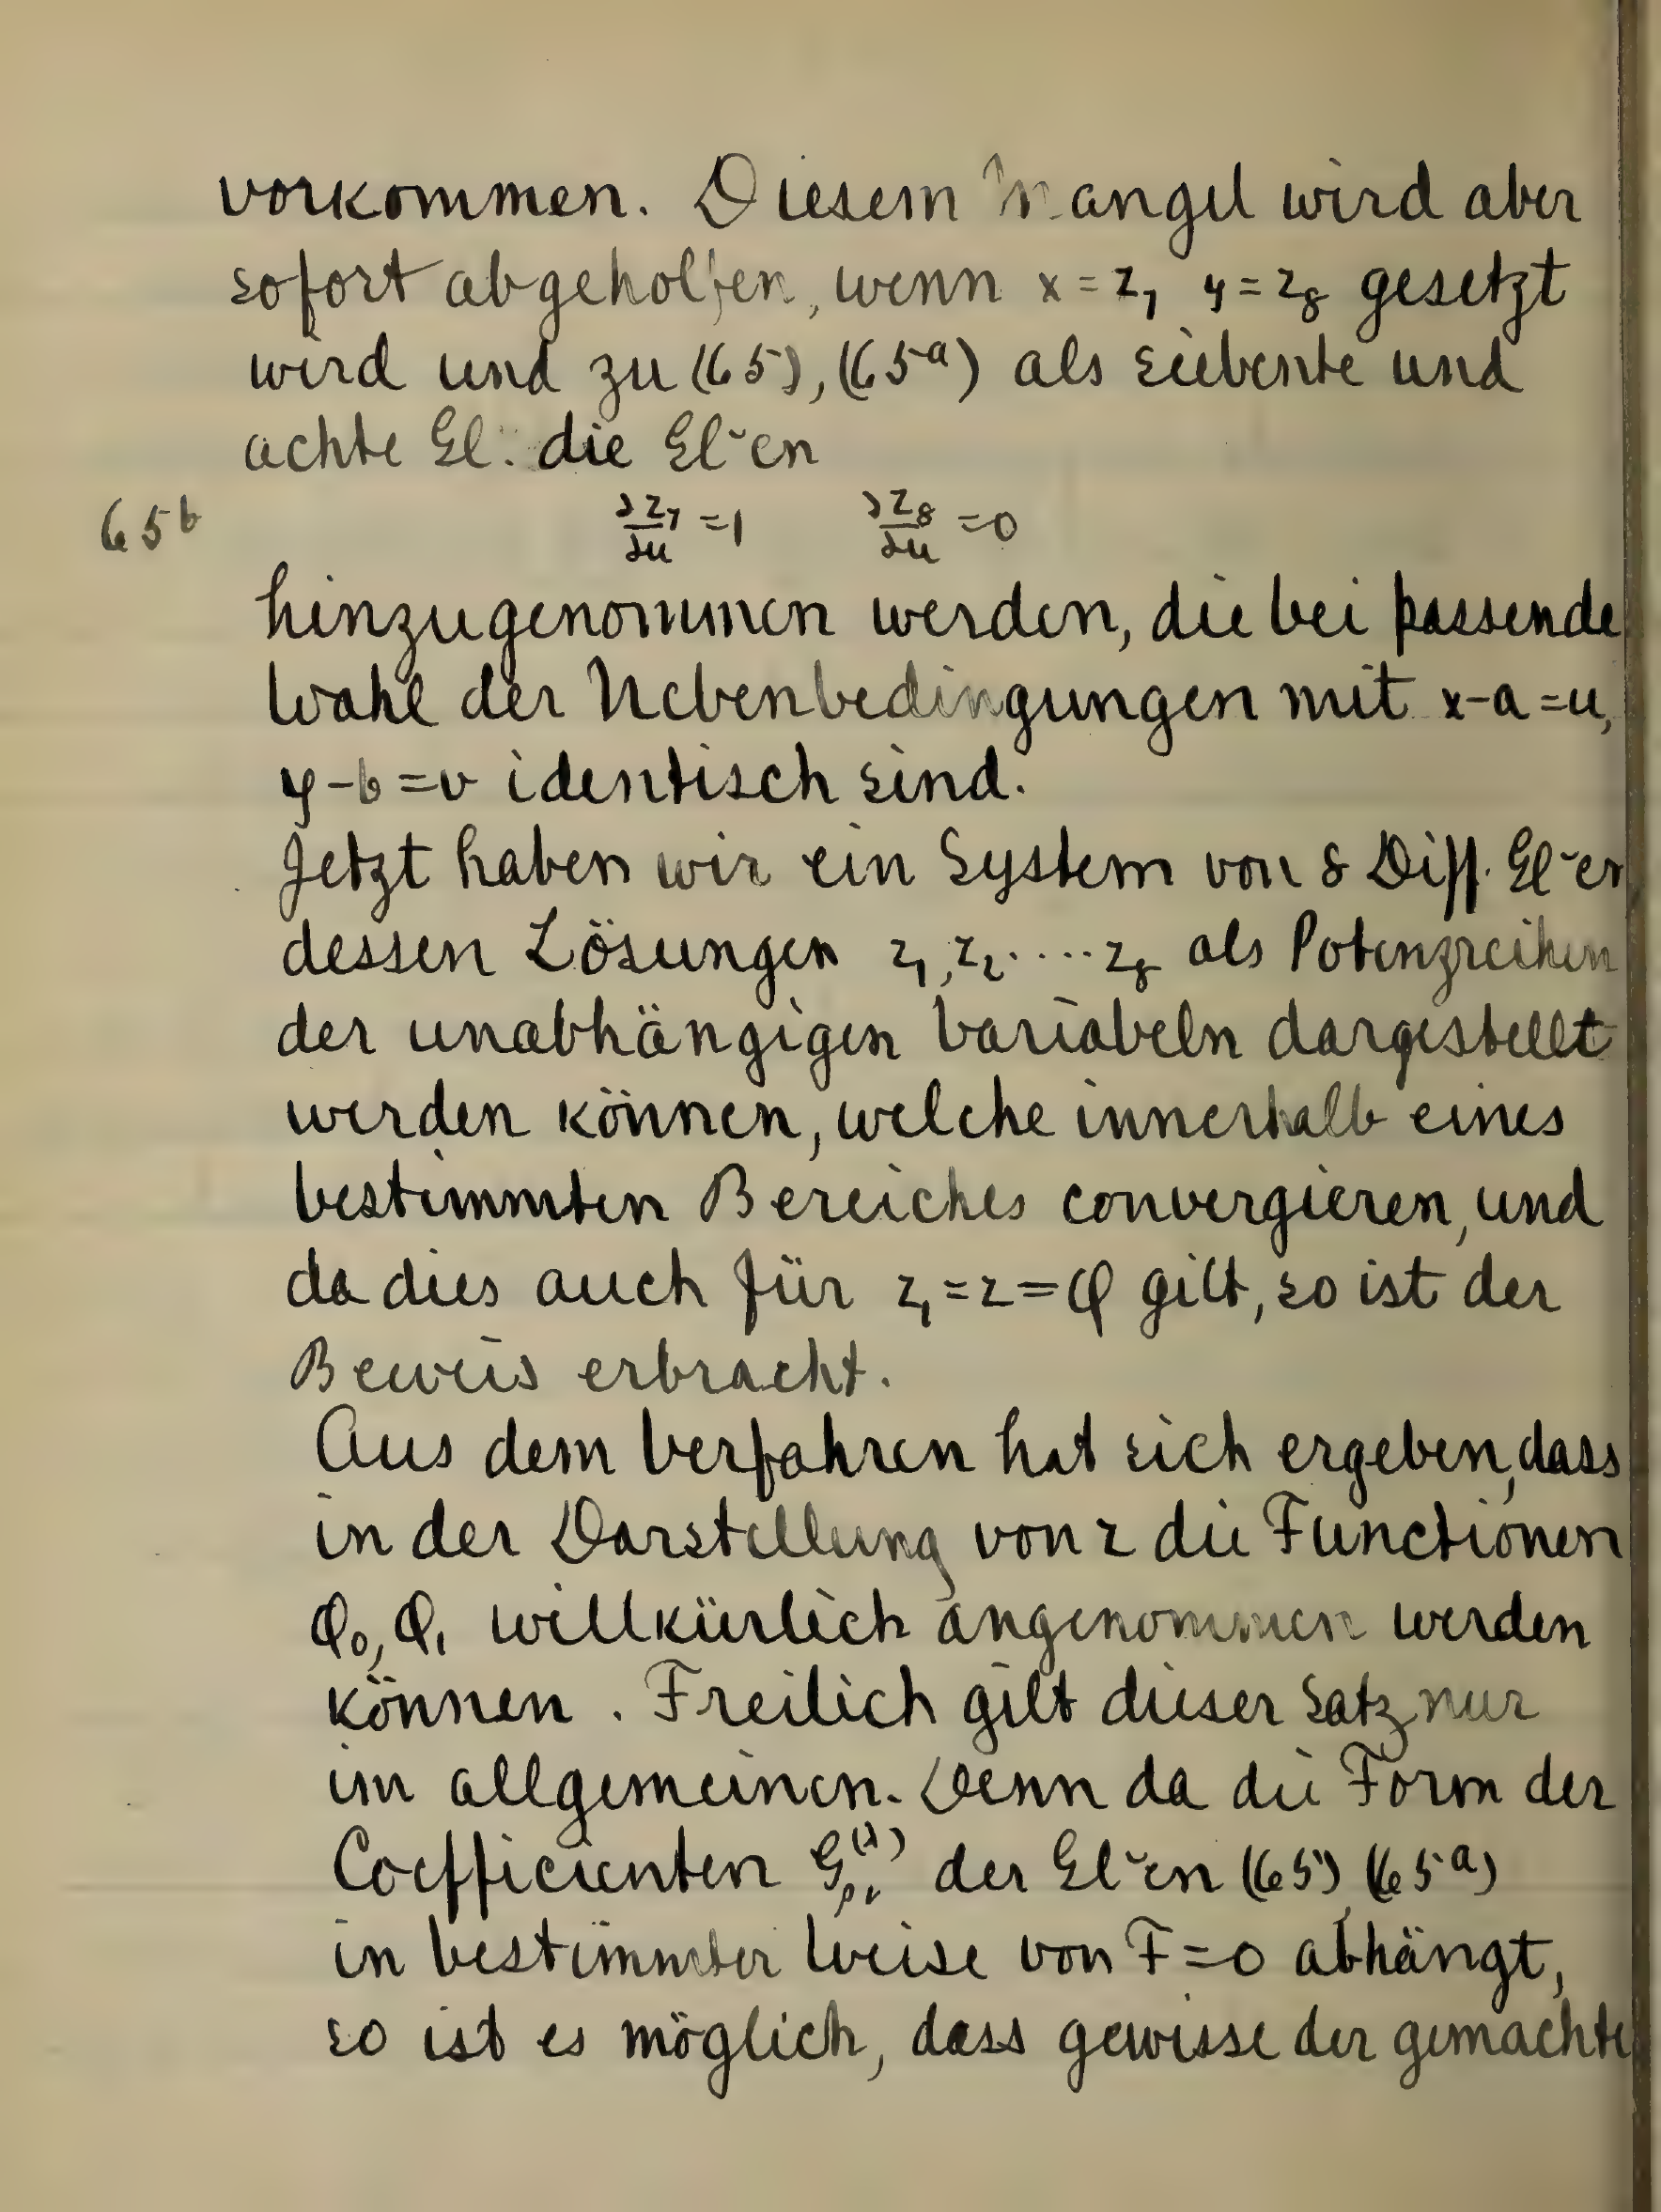 vorkommen. Diesem Mangel wird aber
sofort abgeholfen, wenn x = z₇ y = z₈ gesetzt
wird und zu (65), (65ᵃ) als siebente und
achte Gl. die Gl~en
65ᵇ ∂z₇/∂u = 1 ∂z₈/∂u = 0
hinzugenommen werden, die bei passende
Wahl der Nebenbedingungen mit x-a = u,
y-b = v identisch sind.
Jetzt haben wir ein System von 8 Diff. Gl~en
dessen Lösungen z₁, z₂ .... z₈ als Potenzreihen
der unabhängigen Variabeln dargestellt
werden können, welche innerhalb eines
bestimmten Bereiches convergieren, und
da dies auch für z₁ = z = φ gilt, so ist der
Beweis erbracht.
Aus dem Verfahren hat sich ergeben, dass
in der Darstellung von z die Functionen
φ₀, φ₁ willkürlich angenommen werden
können. Freilich gilt dieser Satz nur
im allgemeinen. Denn da die Form der
Coefficienten der Gl~en (65), (65ᵃ)
in bestimmter Weise von F = 0 abhängt,
so ist es möglich, dass gewisse der gemachte